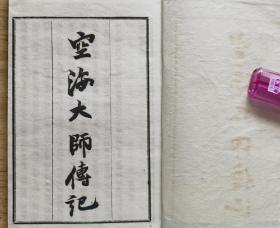 空海大師傳記